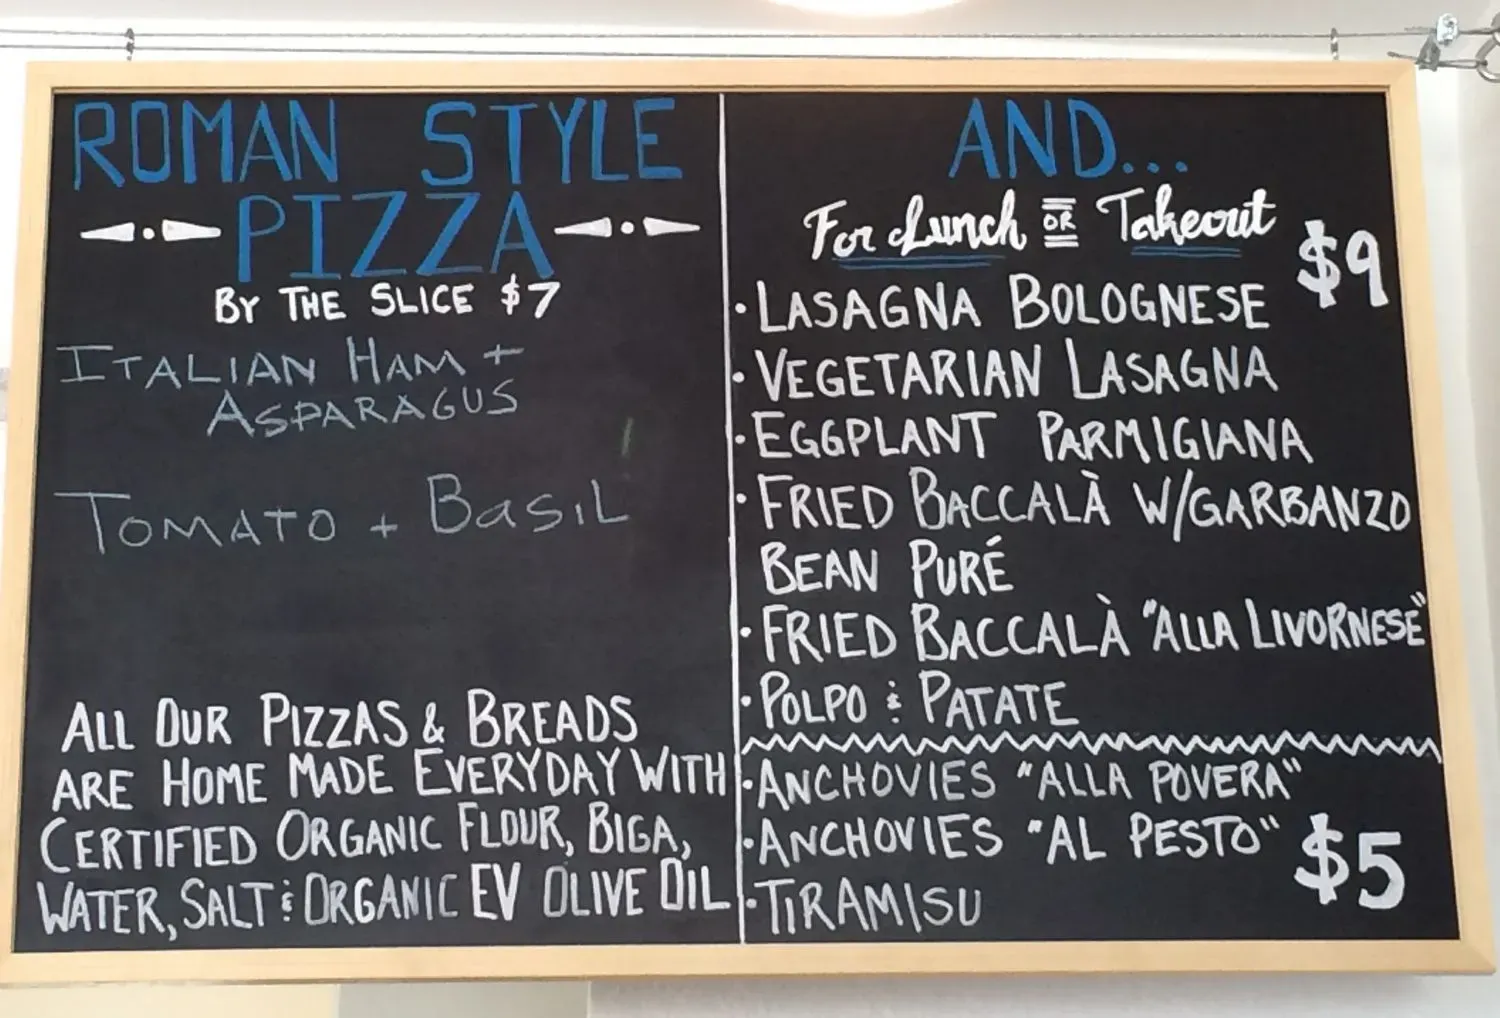 ROMAN STYLE
PIZZA
BY THE SLICE $7
ITALIAN HAM +
ASPARAGUS
TOMATO + BASIL
ALL OUR PIZZAS & BREADS
ARE HOME MADE EVERYDAY WITH
CERTIFIED ORGANIC FLOUR, BIGA,
WATER, SALT & ORGANIC EV OLIVE OIL
AND...
For Lunch OR Takeout
$9
• LASAGNA BOLOGNESE
• VEGETARIAN LASAGNA
• EGGPLANT PARMIGIANA
• FRIED BACCALÀ W/GARBANZO
BEAN PURÉ
• FRIED BACCALÀ "ALLA LIVORNESE"
• POLPO & PATATE
• ANCHOVIES "ALLA POVERA"
• ANCHOVIES "AL PESTO"
$5
• TIRAMISU